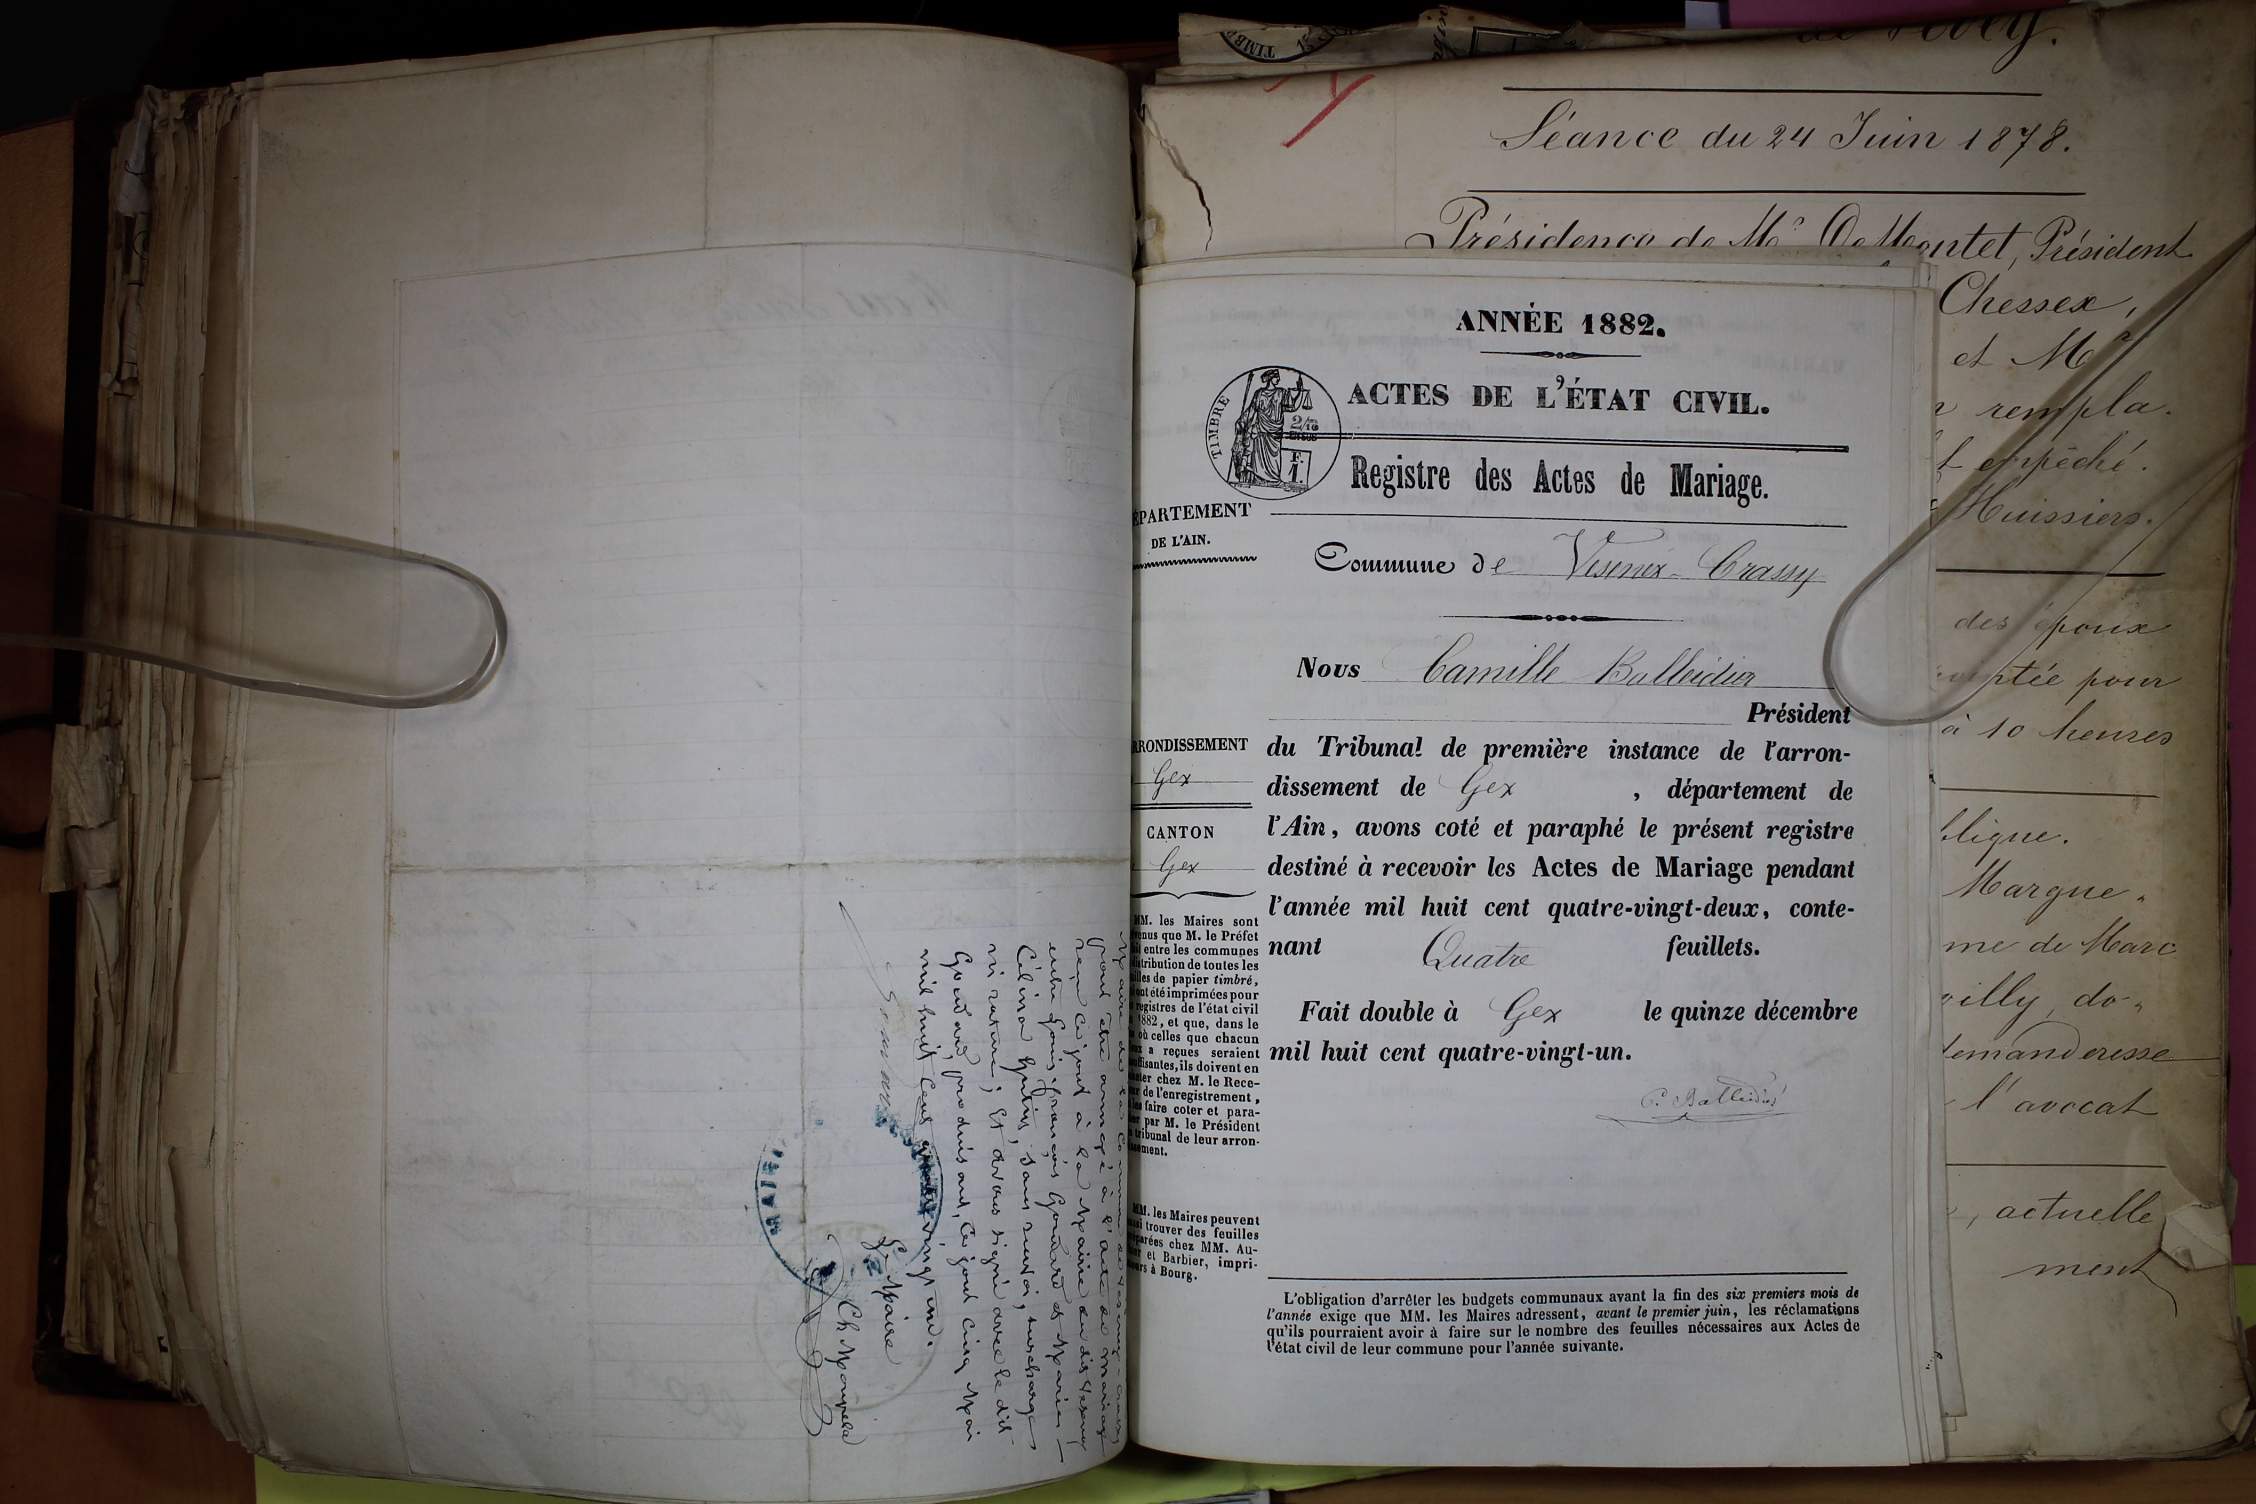 Maire de la Commune de Vesancy-Crassy
pour être annexé à l'acte de mariage
reçu ce jour à la Mairie du dit Vesancy
entre Louis, François Gouard et Marie-
Célina sans renvoi, surcharge
ni rature; Et avons signé avec le dit-
Gouard, produisant, ce jour cinq Mai
mil huit cent quatre vingt un.
Le Maire
Ch
MAIRIE
TIMBRE
de
Séance du 24 Juin 1878.
Présidence de Mr DeMontet, Président
Chessex,
et Mr
rempla-
empêché.
Huissiers.
des époux
pour
à 10 heures
Margue-
me de Marc
do-
demanderesse
l'avocat
, actuelle
ment
ANNÉE 1882.
ACTES DE L'ÉTAT CIVIL.
TIMBRE
2/10
EN SUS
F.
1.
Registre des Actes de Mariage.
ÉPARTEMENT
DE L'AIN.
Commune de Vesenex-Crassy
Nous Camille Balleidier
Président
RRONDISSEMENT
Gex
du Tribunal de première instance de l'arron-
dissement de Gex , département de
CANTON
Gex
l'Ain, avons coté et paraphé le présent registre
destiné à recevoir les Actes de Mariage pendant
l'année mil huit cent quatre-vingt-deux, conte-
nant Quatre feuillets.
Fait double à Gex le quinze décembre
mil huit cent quatre-vingt-un.
C. Balleidier
MM. les Maires sont
venus que M. le Préfet
entre les communes
distribution de toutes les
de papier timbré,
ont été imprimées pour
registres de l'état civil
1882, et que, dans le
où celles que chacun
a reçues seraient
ils doivent en
chez M. le Rece-
de l'enregistrement,
faire coter et para-
par M. le Président
tribunal de leur arron-
sement.
MM. les Maires peuvent
trouver des feuilles
chez MM. Au-
et Barbier, impri-
à Bourg.
L'obligation d'arrêter les budgets communaux avant la fin des six premiers mois de
l'année exige que MM. les Maires adressent, avant le premier juin, les réclamations
qu'ils pourraient avoir à faire sur le nombre des feuilles nécessaires aux Actes de
l'état civil de leur commune pour l'année suivante.